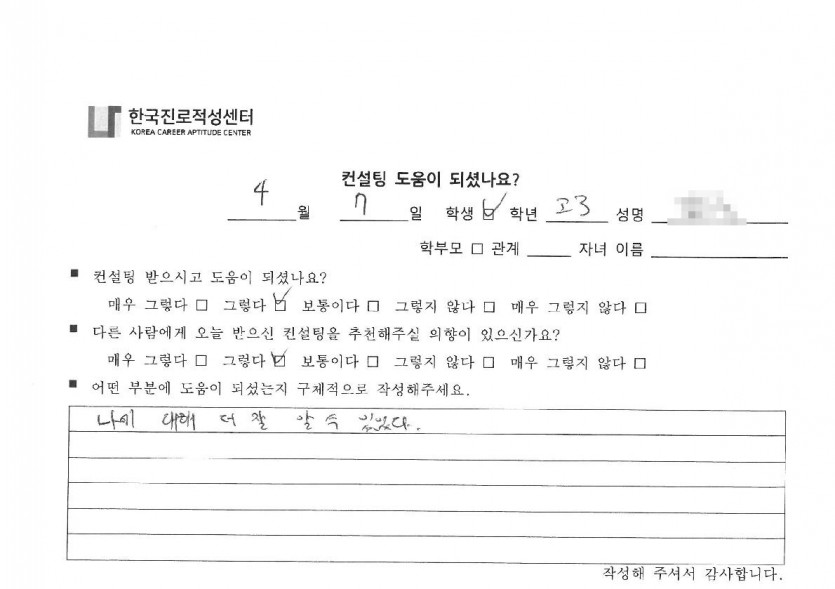 한국진로적성센터
KOREA CAREER APTITUDE CENTER
컨설팅 도움이 되셨나요?
4월 7일 학생 ☑ 학년 고3 성명
학부모 □ 관계 자녀 이름
■ 컨설팅 받으시고 도움이 되셨나요?
매우 그렇다 □ 그렇다 ☑ 보통이다 □ 그렇지 않다 □ 매우 그렇지 않다 □
■ 다른 사람에게 오늘 받으신 컨설팅을 추천해주실 의향이 있으신가요?
매우 그렇다 □ 그렇다 ☑ 보통이다 □ 그렇지 않다 □ 매우 그렇지 않다 □
■ 어떤 부분에 도움이 되셨는지 구체적으로 작성해주세요.
나에 대해 더 잘 알 수 있었다.
작성해 주셔서 감사합니다.